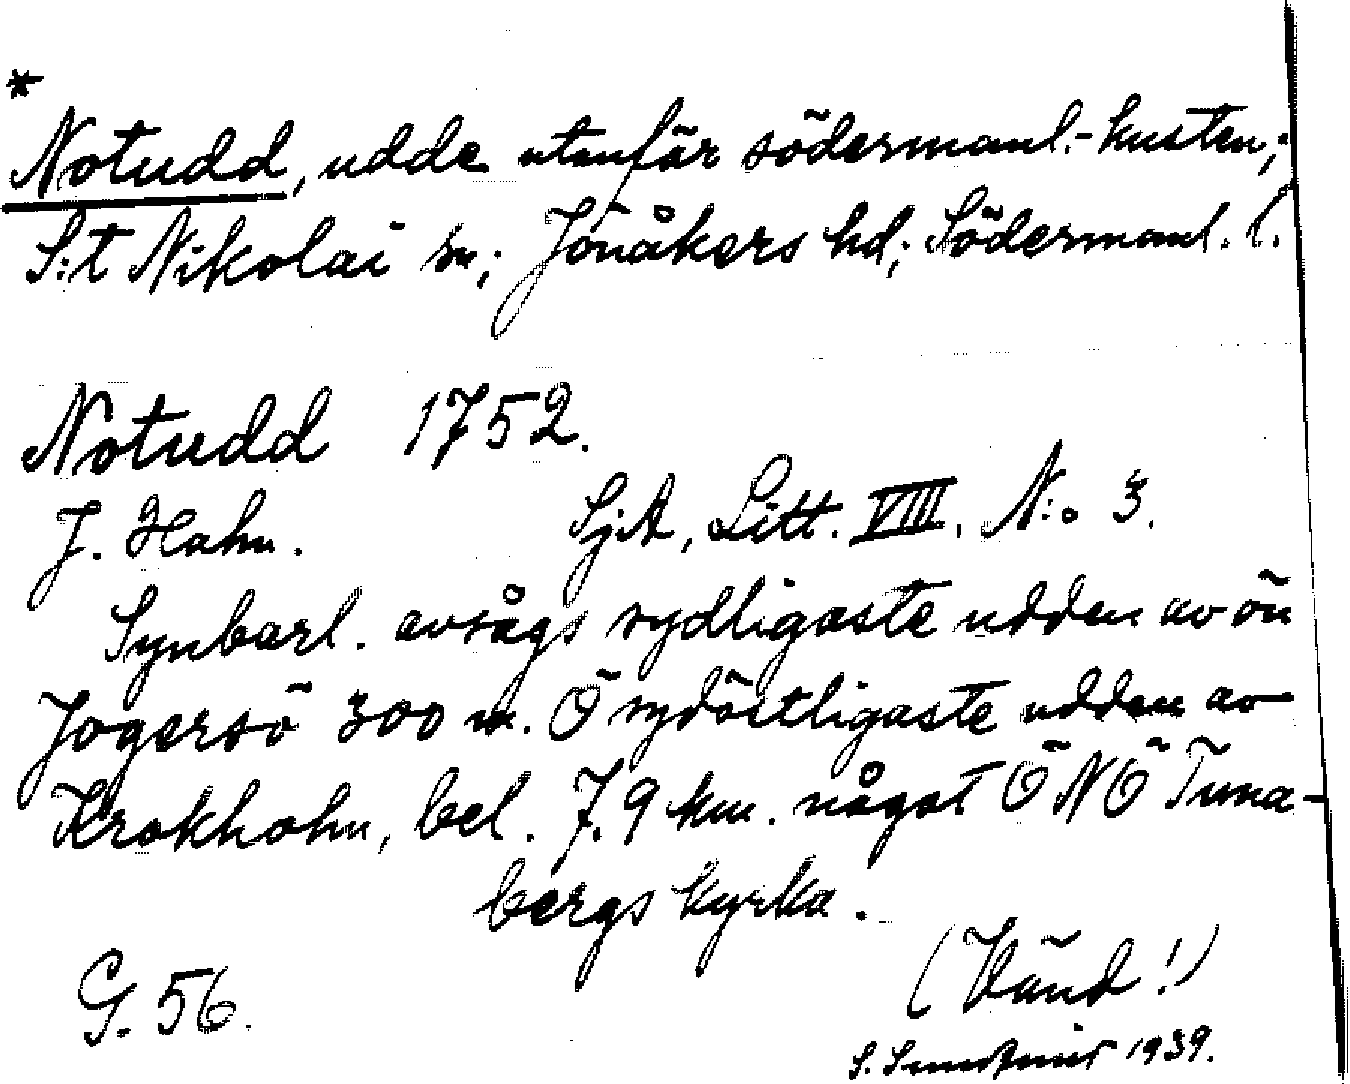 *
Notudd, udde utanför södermanl.-kusten,;
S:t Nikolai sn; Jönåkers hd; Södermanl. l.
Notudd 1752.
J. Hahn. SjA, Litt. VIII. N:o 3.
Synbarl. avsågs sydligaste udden av ön
Jogersö 300 m. Ö sydöstligaste udden av
Krokholm, bel. 7.9 km. något ÖNÖ Tuna-
bergs kyrka.
G. 56. (Vänd!)
S. 1939.